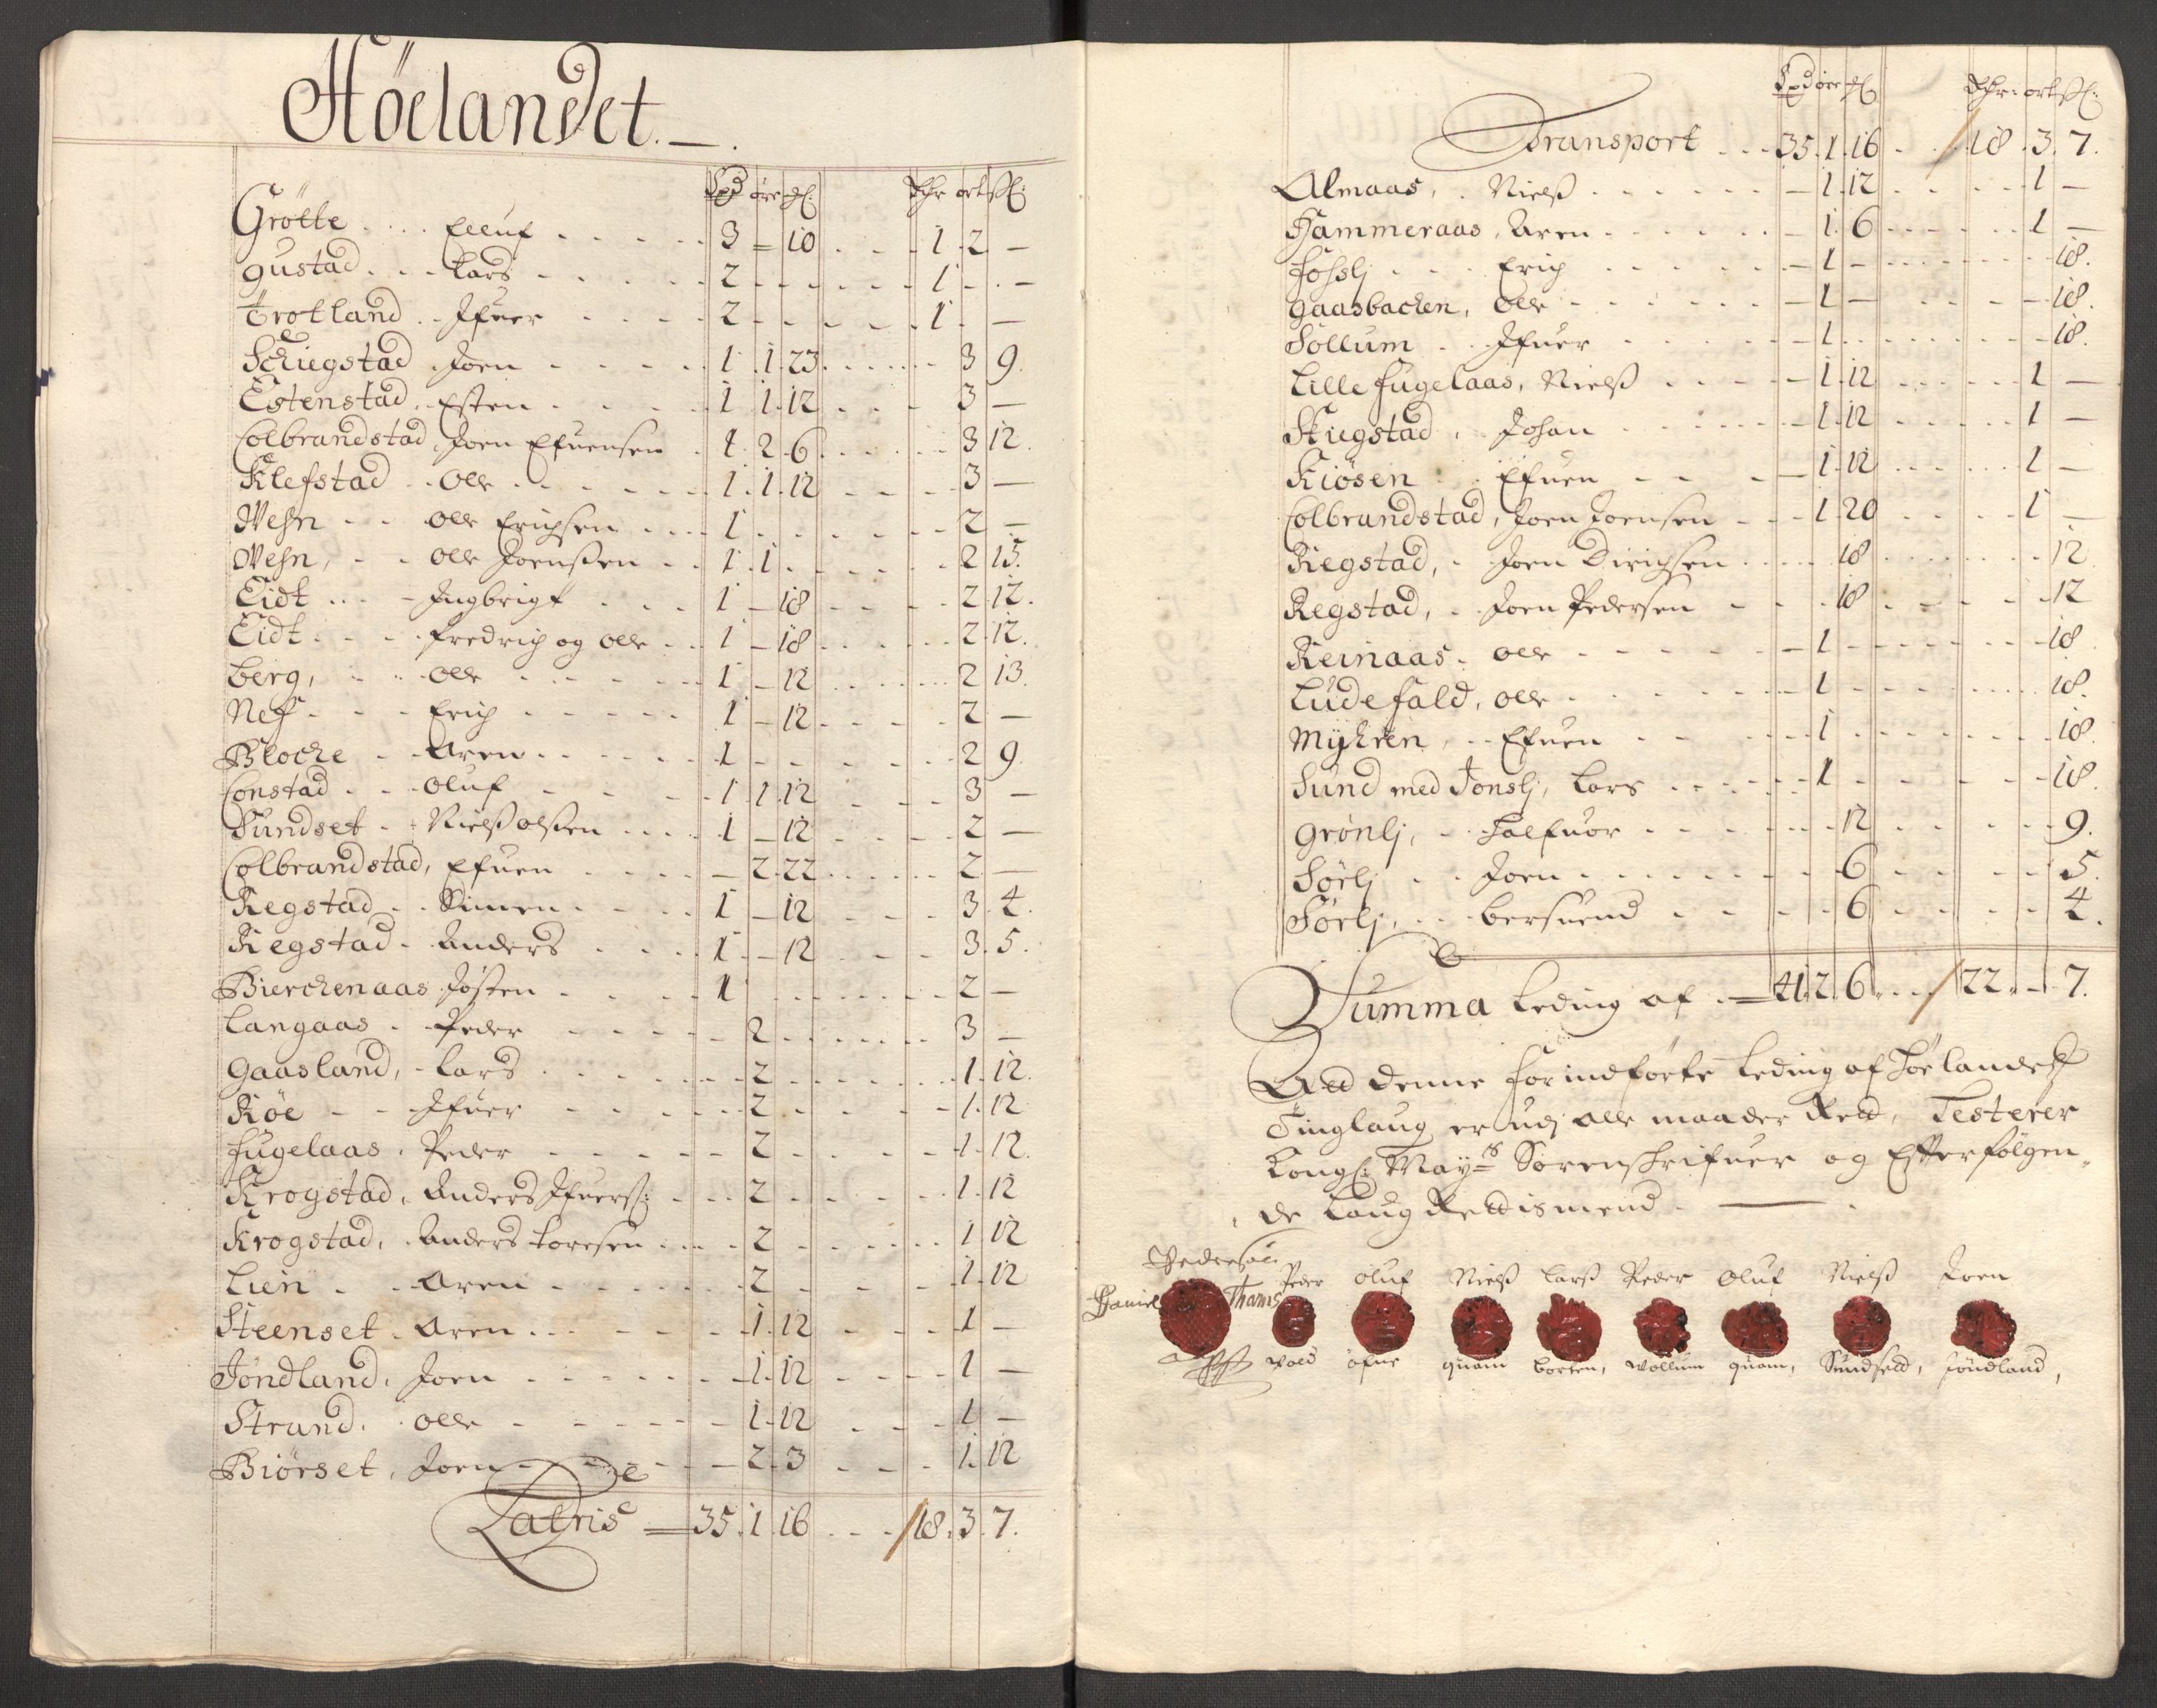 Höelandet.
Spd öre ß: Rdr ort ß:
Grötte Elluf 3 - 10 1 2 -
gustad Lars 2 1 - -
Trotland Ifuer 2 1 -
Schiegstad Joen 1 1 23 3 9
Estenstad Esten 1 1 12 3 -
Colbrandstad, Joen Efuensen 1 2 6 3 12
Klefstad Olle 1 1 12 3 -
Wehn Olle Erichsen 1 2 -
Wehn, Olle Joenssen 1 1 2 15
Eidt Ingbrigt 1 - 18 2 12
Eidt fredrich og Olle 1 - 18 2 12
berg, Olle 1 - 12 2 13
Nef Erich 1 - 12 2 -
Bloche Aren 1 2 9
Constad Oluf 1 1 12 3 -
Sundset Nielß olßen 1 - 12 2 -
Colbrandstad, Efuen - 2 22 2 -
Regstad Simen 1 - 12 3 4
Regstad Anders 1 - 12 3 5
Bierchenaas Josten 1 2 -
Langaas Peder - 2 3 -
Gaasland, Lars 2 1 12
Röe Ifuer 2 1 12
fugelaas, Peder 2 1 12
Krogstad, Anders Ifuerß: 2 1 12
Krogstad, Anders Toresen 2 1 12
Lien Aren 2 1 12
Steenset Aren 1 12 1 -
Jöndland, Joen 1 12 1 -
Strand, Olle 1 12 1 -
Biörset, Joen 2 3 1 12
Latris 35 1 16 18 3 7
Spd öre ß Rdr ort ß:
Transport 35 1 16 18 3 7
Almaas, Nielß - 1 12 1 -
Hammeraas, Aren - 1 6 1 -
fosslj Erich - 1 - 18
gaasbachen, Olle - 1 - 18
Sollum Ifuer - 1 18
Lille fugelaas, Nielß - 1 12 1 -
Skiegstad, Johan - 1 12 1 -
Kiösen Efuen - 1 12 1 -
Colbrandstad, Joen Joensen 1 20 1 -
Regstad, Joen Dirichsen 18 12
Regstad, Joen Pedersen 18 12
Reinaas Olle - 1 18
Ludefald, Olle 1 18
Myhren, Efuen 1 18
Sund med Tonslj, Lars 1 18
grönlj, Halfuor 12 9
Sörlj Joen 6 5
Sörlj, bersuend 6 4
Summa Leding af 41 2 6 22 - 7
Att denne for indförte Leding af Höelandetz
Tinglaug er udj alle maader Rett, Testerer
Kongl: Mayts Sorenschrifuer og Efterfölgen
de Laug Rettismend.
Peder Oluf Nielß Larß Peder Oluf Nielß Joen
Daniel Thams
Vold öfue quam borten, Wollum quam, Sundsett, jöndland,